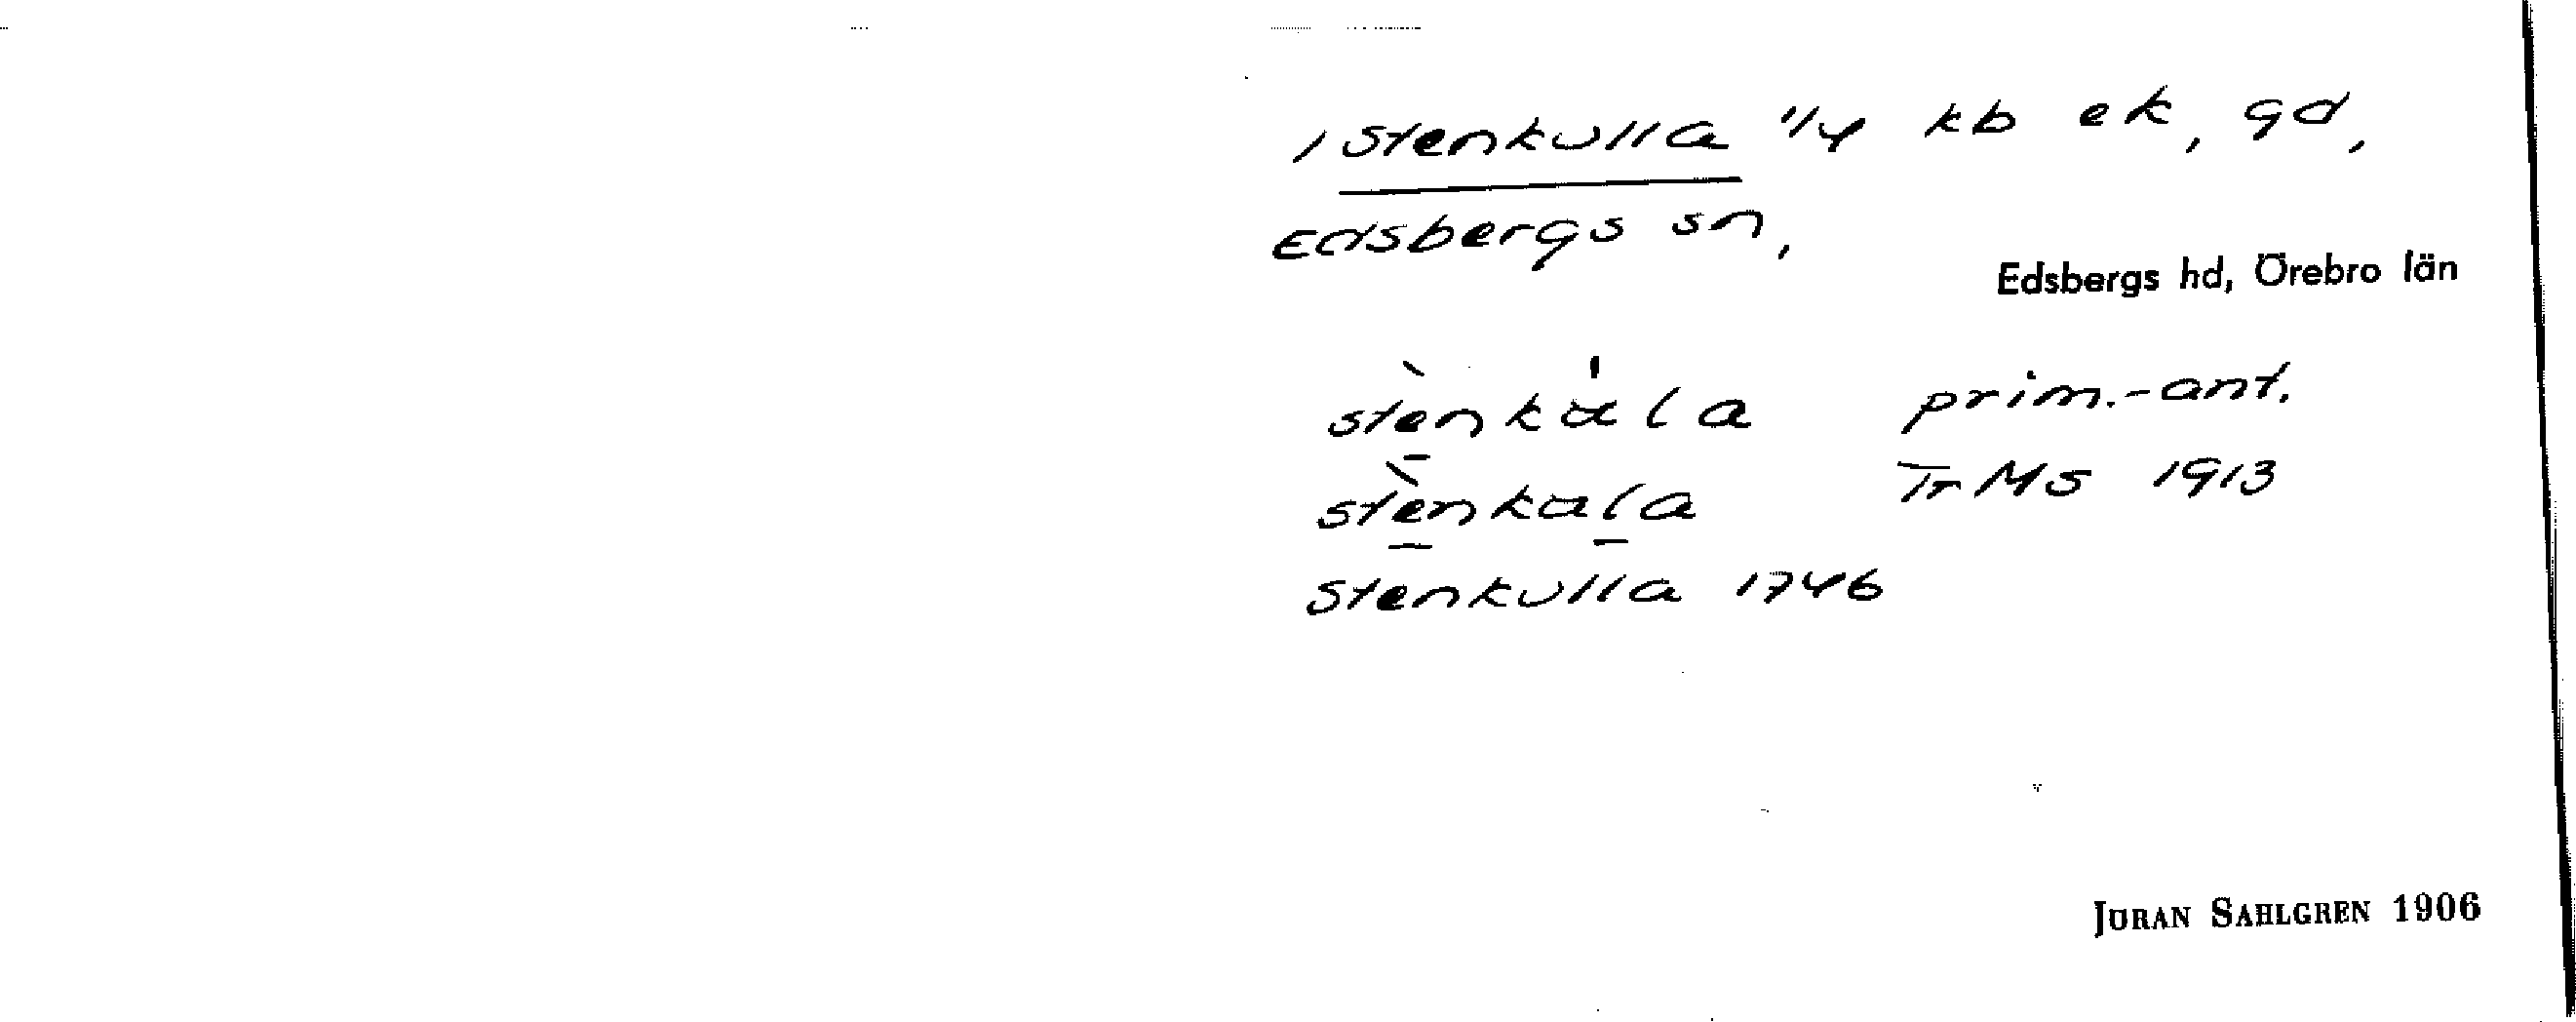 1 Stenkulla 1/4 kb ek, gd,
Edsbergs sn,
Edsbergs hd, Örebro län
prim.-ant.
Tr MS 1913
Stenkulla 1746
JÖRAN SAHLGREN 1906